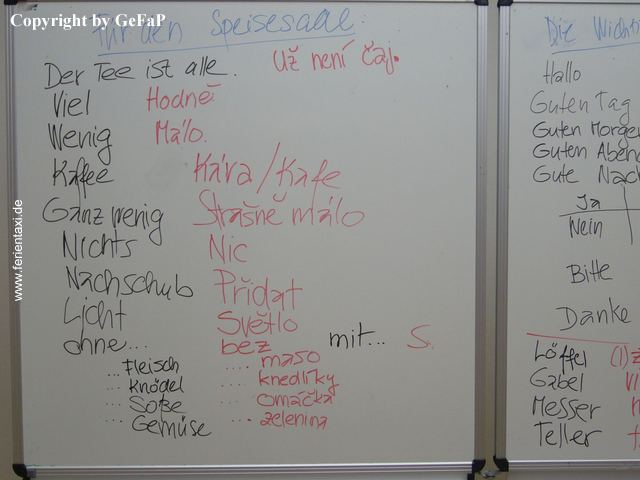 Copyright by GeFaP
www.ferientaxi.de
Für den Speisesaal:
Der Tee ist alle. Už není čaj.
Viel Hodně
Wenig Málo.
Kaffee Káva/Kafe
Ganz wenig Strašně málo
Nichts Nic
Nachschub Přidat
Licht Světlo
ohne... bez mit... S.
... Fleisch .... maso
... Knödel .... knedlíky
... Soße .... omáčka
... Gemüse ... zelenina
Die Wichti
Hallo
Guten Tag
Guten Morgen
Guten Abend
Gute Nach
Ja
Nein
Bitte
Danke
Löffel (l)ž
Gabel vi
Messer n
Teller t